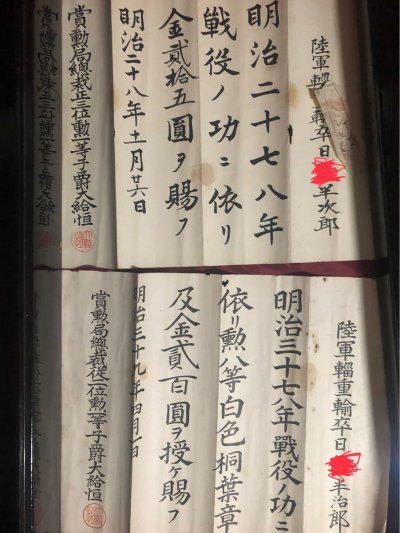 陸軍輜
卒日
半次郎
明治二十七八年
戦役ノ功ニ依リ
金貳拾五圓ヲ賜フ
明治二十八年十一月廿六日
賞勲局總裁正三位勲一等子爵大給恒
賞勲局總裁正三位勲一等子爵大給恒
陸軍輜重輸卒日
半治郎
明治三十七八年戰役ノ功ニ
依リ勲八等白色桐葉章
及金貳百圓ヲ授ケ賜フ
明治三十九年四月一日
賞勲局總裁從二位勲一等子爵大給恒